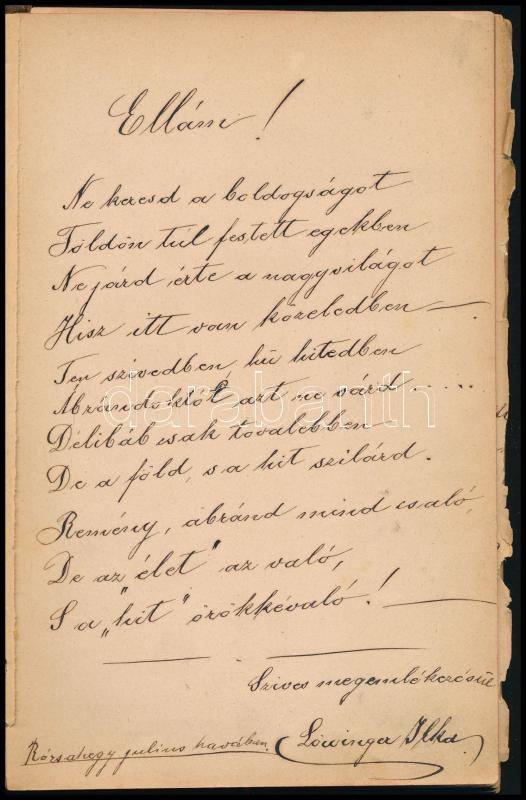 Ellám!
Ne keresd a boldogságot
Földön túl festett egekben
Ne járd érte a nagyvilágot
Hisz itt van közeledben —.
Ten szivedben hű hitedben
Ábrándoktól azt ne várd ....
Délibáb csak tovalebben
De a föld, s a hit szilárd.
Remény, ábránd mind csaló,
De az „élet" az való,
S a „hit" örökkévaló! —
Szives megemlékezésül
Rózsahegy julius havában. Löwinger Ilka
darabanth